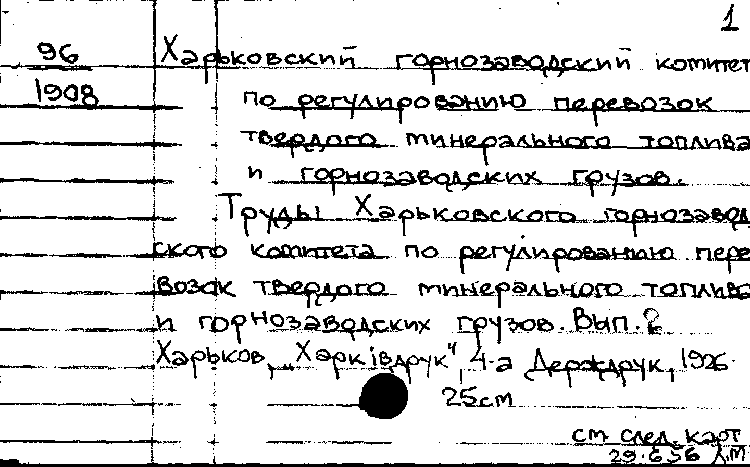 1
96
1908
Харьковский горнозаводский комитет
по регулированию перевозок
твердого минерального топлива
и горнозаводских грузов.
Труды Харьковского горнозавод
ского комитета по регулированию пере
возок твердого минерального топлива
и горнозаводских грузов. Вып. 2
Харьков, „Харкiвдрук", 4-а Держдрук, 1926
25см
см след. карт
29.6.56 Л.М